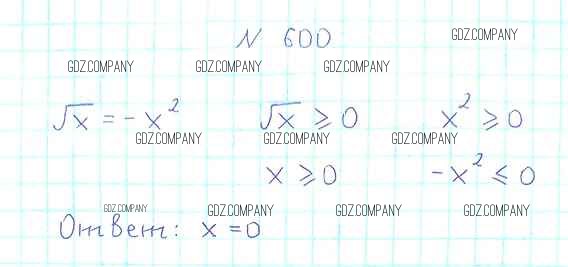 N 600
GDZ.COMPANY
GDZ.COMPANY GDZ.COMPANY GDZ.COMPANY
√x = - x² √x ⩾ 0 x² ⩾ 0
GDZ.COMPANY GDZ.COMPANY GDZ.COMPANY
x ⩾ 0 -x² ⩽ 0
GDZ.COMPANY GDZ.COMPANY GDZ.COMPANY GDZ.COMPANY
Ответ: x = 0